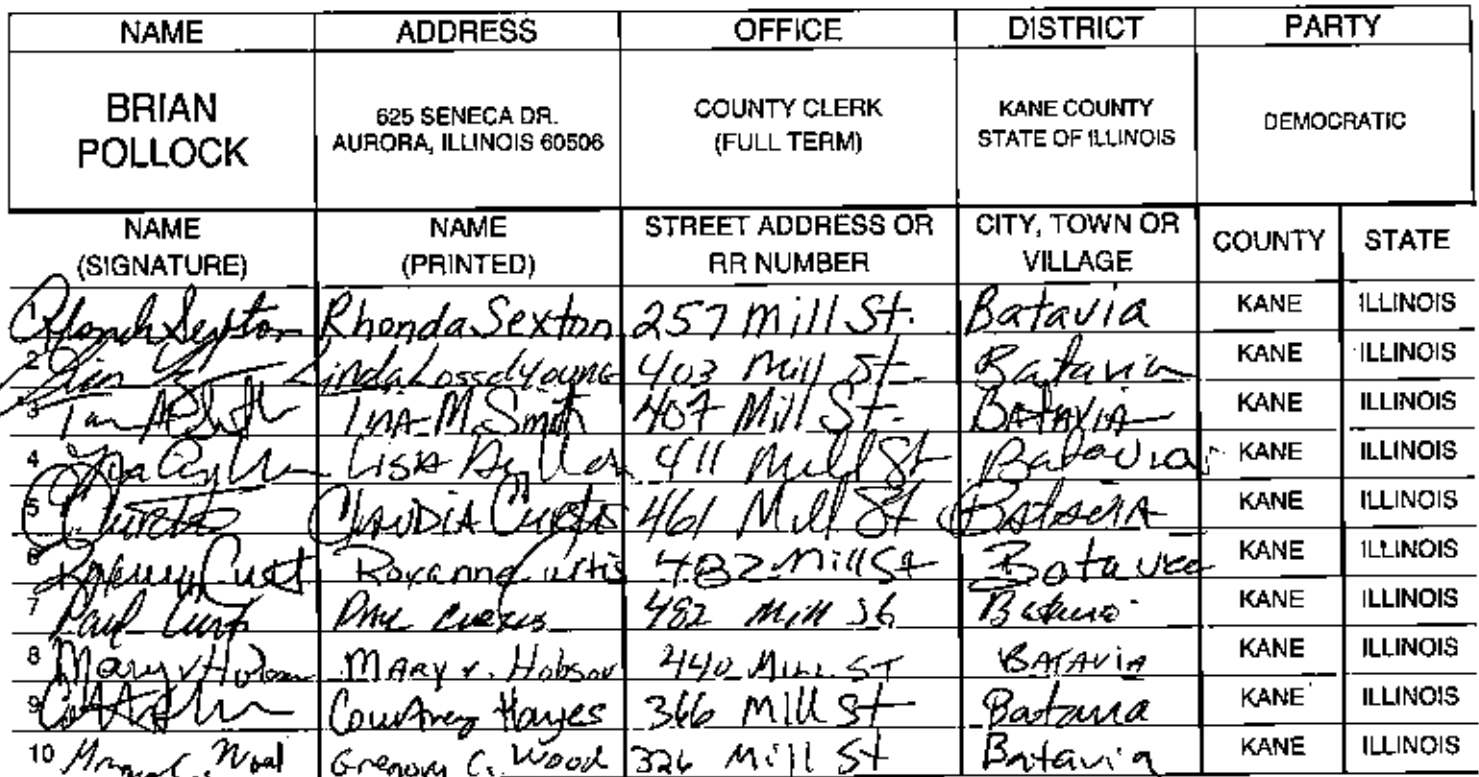 NAME ADDRESS OFFICE DISTRICT PARTY
BRIAN POLLOCK 625 SENECA DR. AURORA, ILLINOIS 60506 COUNTY CLERK (FULL TERM) KANE COUNTY STATE OF ILLINOIS DEMOCRATIC
NAME (SIGNATURE) NAME (PRINTED) STREET ADDRESS OR RR NUMBER CITY, TOWN OR VILLAGE COUNTY STATE
1 Rhonda Sexton Rhonda Sexton 257 Mill St. Batavia KANE ILLINOIS
2 Linda 403 Mill St Batavia KANE ILLINOIS
3 Tina M Smith 407 Mill St. BATAVIA KANE ILLINOIS
4 Lisa 411 Mill St Batavia KANE ILLINOIS
5 Curtis CLAUDIA Curtis 461 Mill St Batavia KANE ILLINOIS
6 Roxanne Curtis 482 Mill St Batavia KANE ILLINOIS
7 Paul Curtis PAUL CURTIS 482 Mill St Batavia KANE ILLINOIS
8 Mary V Hobson MARY V. Hobson 440 MILL ST BATAVIA KANE ILLINOIS
9 Courtney Hayes 366 Mill St Batavia KANE ILLINOIS
10 Wood Gregory C. Wood 326 Mill St Batavia KANE ILLINOIS